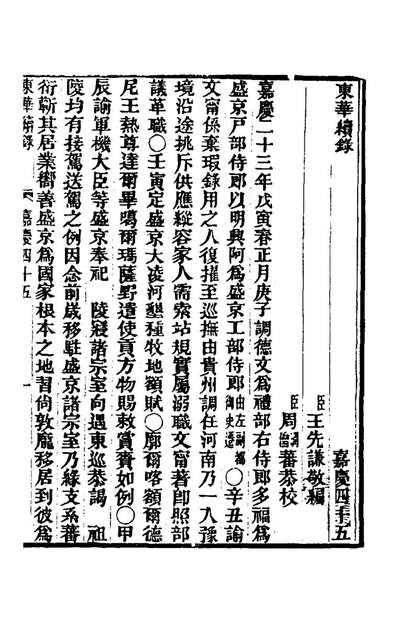 東華續錄 嘉慶四十五
臣王先謙敬編
臣周潤蕃恭校
嘉慶二十三年戊寅春正月庚子調德文爲禮部右侍郎多福爲
盛京戶部侍郎以明興阿爲盛京工部侍郎由左副都御史遷〇辛丑諭
文甯係棄瑕錄用之人復擢至巡撫由貴州調任河南乃一入豫
境沿途挑斥供應縱容家人需索站規實屬溺職文甯著卽照部
議革職〇壬寅定盛京大淩河墾種牧地額賦〇廓爾喀額爾德
尼王熱尊達爾畢噶爾瑪薩野遣使貢方物賜敕賞賚如例〇甲
辰諭軍機大臣等盛京奉祀 陵寢諸宗室向遇東巡恭謁 祖
陵均有接駕送駕之例因念前歲移駐盛京諸宗室乃綠支系蕃
衍斬其居業嚮善盛京爲國家根本之地習尙敦龐移居到彼爲
東華續錄 嘉慶四十五 一